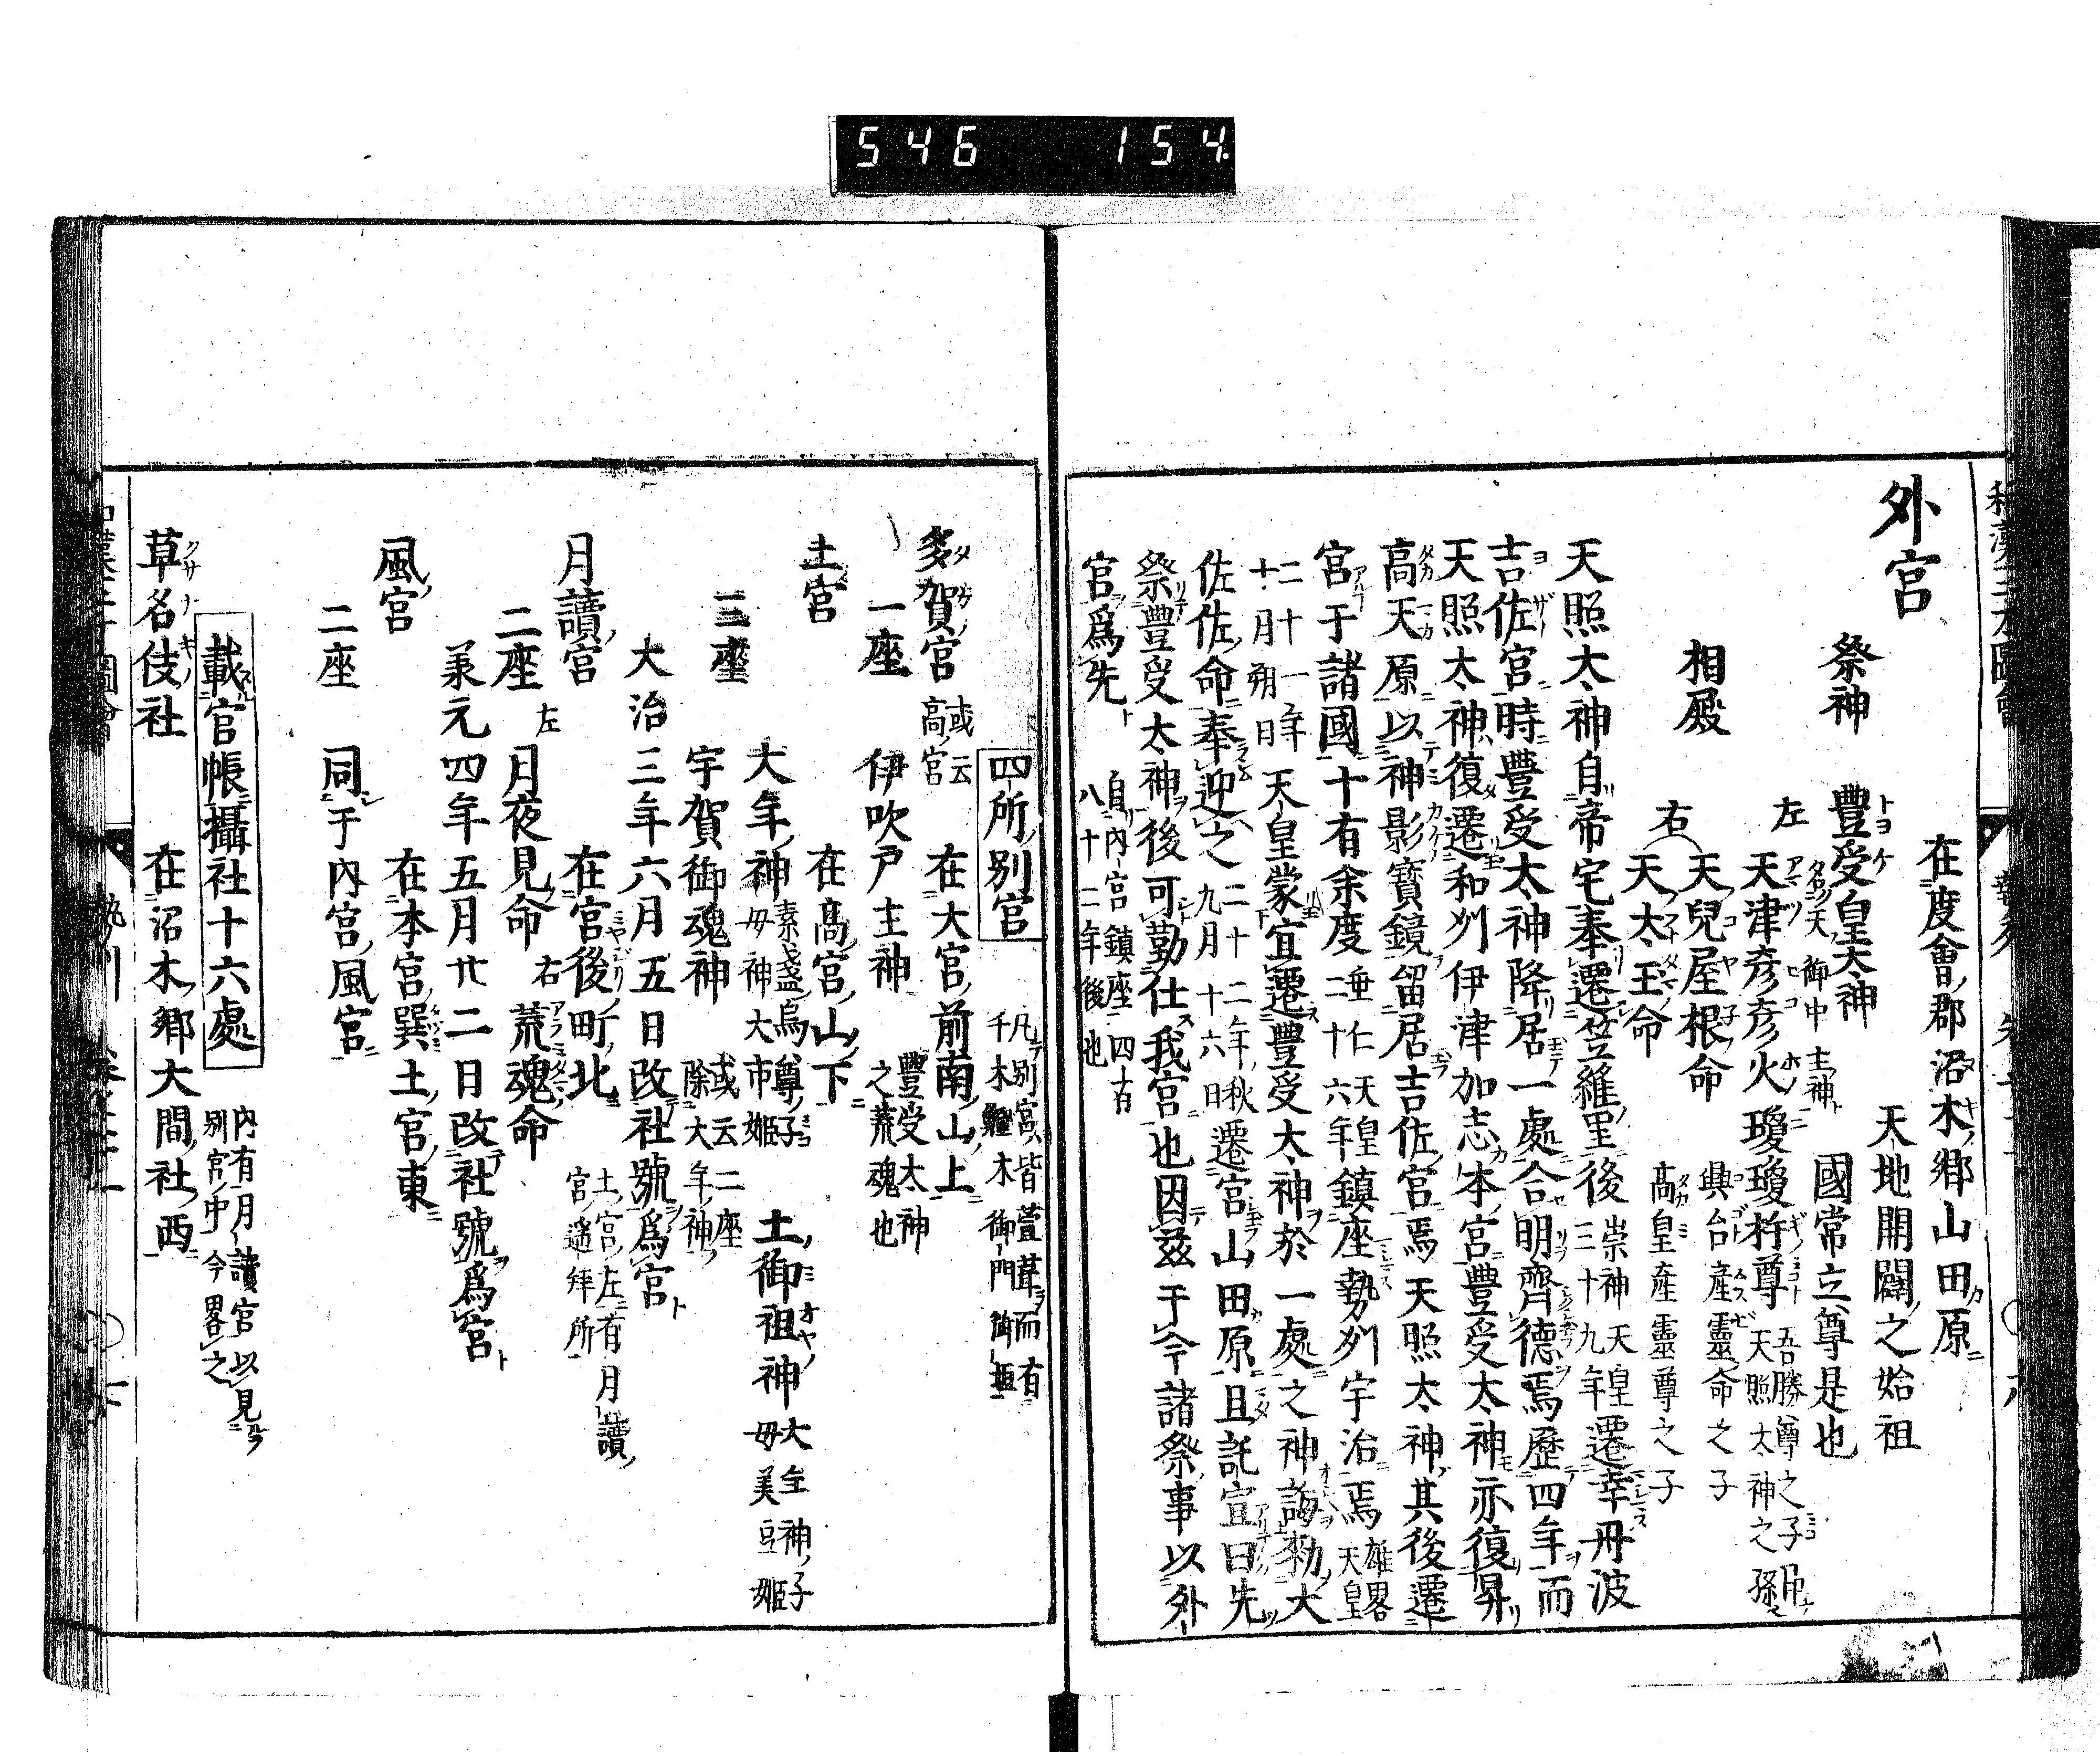 546 154
外宮
在度會郡沼木鄉山田原
天地開闢之始祖
祭神 豐受皇太神 名天御中主神 國常立尊是也
左 天津彦彦火瓊瓊杵尊 吾勝尊之子 天照太神之孫
相殿
右 天兒屋根命 興台產靈命之子
天太玉命 高皇產靈尊之子
天照太神自帝宅奉遷笠縫里後 崇神天皇三十九年 遷幸丹波
吉佐宮時豐受太神降居一處合明齊德焉歷四年而
天照太神復遷和刕伊津加志本宮豐受太神亦復昇
高天原以神影寶鏡留居吉佐宮焉天照太神其後遷
宮于諸國十有余度 垂仁天皇二十六年 鎮座勢刕宇治焉 雄畧天皇
二十一年十月朔日 天皇蒙宜遷豐受太神於一處之神誨勅大
佐佐命奉迎之 二十二年秋九月十六日 遷宮山田原且託宣曰先
祭豐受太神後可勤仕我宮也因茲于今諸祭事以外
宮爲先 自內宮鎮座四百八十二年後也
四所別宮 凡別宮皆萱葺而有千木木御門御垣
多賀宮 或云高宮 在大宮前南山上
一座 伊吹戸主神 豐受太神之荒魂也
土宮 在高宮山下
三座 大年神 素戔烏尊子母神大市姬 土御祖神 大主神子母美豆姬
宇賀御魂神 或云二座除大年神
大治三年六月五日改社號爲宮
月讀宮 在宮後町北 土宮左有月讀宮遥拜所
二座 左 月夜見命 右 荒魂命
兼元四年五月廿二日改社號爲宮
風宮 在本宮巽土宮東
二座 同于內宮風宮
載官帳攝社十六處 內有月讀宮以見別宮中今畧之
草名伎社 在沼木鄉大間社西